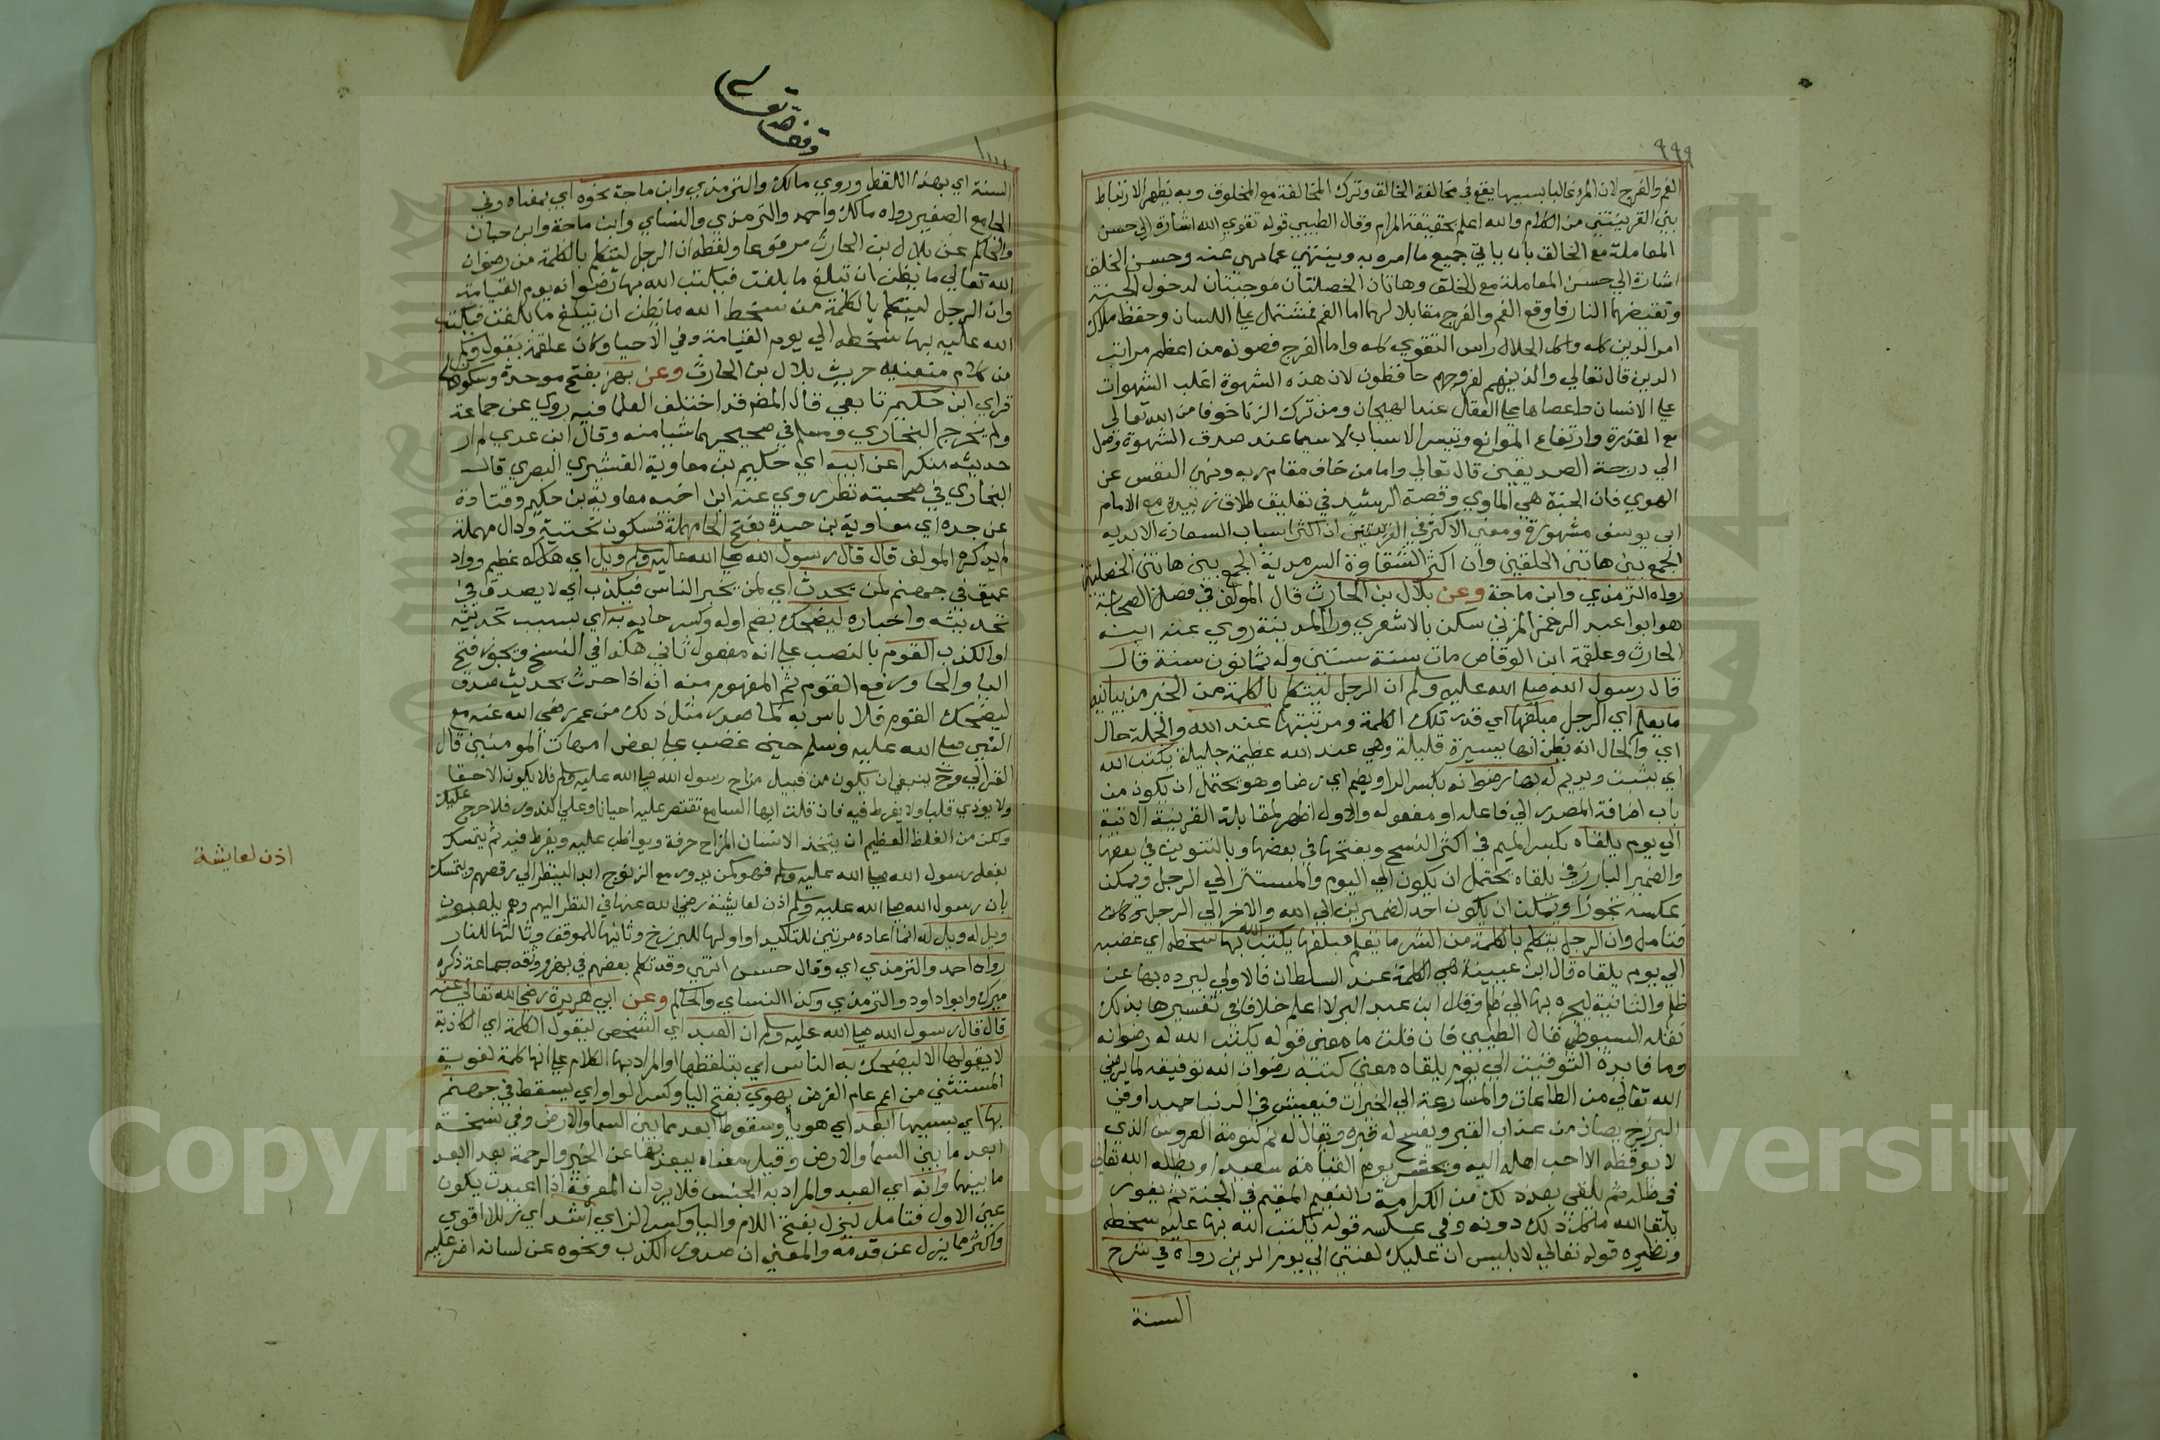 ٩٩٩
الفم والفرج لان المرء غالبا بسببهما يقع في مخالفة الخالق وترك المخالفة مع المخلوق وبه يظهر الارتباط
بين القرينتين من الكلام والله اعلم بحقيقة المرام وقال الطيبي قوله تقوي الله اشارة الي حسن
المعاملة مع الخالق بان ياتي جميع ما امره به وينتهي عما نهي عنه وحسن الخلق
اشارة الي حسن المعاملة مع الخلق وهاتان الخصلتان موجبتان لدخول الجنة
ونقيضهما النار فاوقع الفم والفرج مقابلا لهما اما الفم فمشتمل علي اللسان وحفظه ملاك
امر الدين كله واكل الحلال راس التقوي كله واما الفرج فصونه من اعظم مراتب
الدين قال تعالي والذين هم لفروجهم حافظون لان هذه الشهوة اغلب الشهوات
علي الانسان واعصاها علي العقال عند الهيجان ومن ترك الزنا خوفا من الله تعالي
مع القدرة وارتفاع الموانع وتيسر الاسباب لاسيما عند صدق الشهوة وصل
الي درجة الصديقين قال تعالي واما من خاف مقام ربه ونهي النفس عن
الهوي فان الجنة هي الماوي وقصة الرشيد في تعليق طلاق زبيدة مع الامام
ابي يوسف مشهورة ومعني الاكثرفي القرينتين ان اكثر اسباب السعادة الابدية
الجمع بين هاتين الخلقين وان اكثر الشقاوة السرمدية الجمع بين هاتين الخصلتين
رواه الترمذي وابن ماجة وعن بلال بن الحارث قال المولف في فصل الصحابة
هو ابوا عبد الرحمن المزني سكن بالاشعري ورا المدينة روي عنه ابنه
الحارث وعلقمة ابن الوقاص مات سنة ستين وله ثمانون سنة قال
قال رسول الله صلي الله عليه وسلم ان الرجل ليتكلم بالكلمة من الخير من بيانيه
ما يعلم اي الرجل مبلغها اي قدر تلك الكلمة ومرتبتها عند الله والجملة حال
اي والحال انه يظن انها يسيرة قليلة وهي عند الله عظيمة جليلة يكتب الله
اي يثبت ويديم له بها رضوانه بكسر الرا ويضم اي رضا وهو يحتمل ان يكون من
باب اضافة المصدر الي فاعله او مفعوله والاول اظهر لمقابلة القرينة الاتية
الي يوم يلقاه بكسر الميم في اكثر النسخ وبفتحها في بعضها وبالتنوين في بعضها
والضمير البارز في يلقاه يحتمل ان يكون الي اليوم والمستتر الي الرجل ويمكن
عكسه تجوزا ويمكن ان يكون احد الضميرين الي الله والاخر الي الرجل
فتامل وان الرجل يتكلم بالكلمة من الشر ما يعلم مبلغها يكتب الله بها سخطه اي غضبه
الي يوم يلقاه قال ابن عيينة هي الكلمة عند السلطان فالاولي ليرده بها عن
ظلم والثانية ليجره بها الي ظلم وقال ابن عبد البر لا اعلم خلافا في تفسيرها بذلك
نقله السيوطي قال الطيبي فان قلت ما معني قوله يكتب الله له رضوانه
وما فايدة التوقيت الي يوم يلقاه معني كتبه رضوان الله توفيقه لما يرضي
الله تعالي من الطاعات والمسارعة الي الخيرات فيعيش في الدنيا حميدا وفي
البرزخ يصان من عذاب القبر ويفسح له قبره ويقال له نم كنومة العروس الذي
لا يوقظه الا احب اهله اليه ويحشر يوم القيامة سعيدا ويظله الله تعالي
في ظله ثم يلقي بعد ذلك من الكرامة بالنعيم المقيم في الجنة ثم يفوز
بلقا الله ما كل ذلك دونه وفي عكسه قوله يكتب الله بها عليه سخطه
ونظيره قوله تعالي لابليس ان عليك لعنتي الي يوم الدين رواه في شرح
السنة
وقف لله تعالي
١٠٠٠
السنة اي بهذا اللفظ وروي مالك والترمذي وابن ماجة نحوه اي بمعناه وفي
الجامع الصغير رواه مالك واحمد والترمذي والنساي وابن ماجة وابن حبان
والحاكم عن بلال بن الحارث مرفوعا ولفظه ان الرجل ليتكلم بالكلمة من رضوان
الله تعالي ما يظن ان تبلغ ما بلغت فيكتب الله بها رضوانه يوم القيامة
وان الرجل ليتكلم بالكلمة من سخط الله ما يظن ان تبلغ ما بلغت فيكتب
الله عليه بها سخطه الي يوم القيامة وفي الاحيا وكان علقمة يقول وكم
من كلام منعنيه حديث بلال بن الحارث وعن بهز بفتح موحدة وسكون ها
فزاي ابن حكيم تابعي قال المص قد اختلف العلما فيه روي عن جماعة
ولم يخرج البخاري ومسلم في صحيحيهما شيا منه وقال ابن عدي لم ار
حديثه منكرا عن ابيه اي حكيم بن معاوية القشيري البصري قال
البخاري في صحبته نظر روي عنه ابن اخيه معاوية بن حكيم وقتادة
عن جده اي معاوية بن حيدة بفتح الحا مهملة فسكون تحتية ودال مهملة
لم يذكره المولف قال قال رسول الله صلي الله عليه وسلم ويل اي هلاك عظيم وواد
عميق في جهنم لمن يحدث اي لمن يخبر الناس فيكذب اي لا يصدق في
تحديثه واخباره ليضحك بضم اوله وكسر حايه به اي بسبب تحديثه
او الكذب القوم بالنصب علي انه مفعول ثاني هكذا في النسخ ويجوز فتح
اليا والحا ورفع القوم ثم المفهوم منه انه اذا حدث بحديث صدق
ليضحك القوم فلا باس به كما صدر مثل ذلك من عمر رضي الله عنه مع
النبي صلي الله عليه وسلم حين غضب علي بعض امهات المومنين قال
الغزالي وح ينبغي ان يكون من قبيل مزاح رسول الله صلي الله عليه وسلم فلا يكون الا حقا
ولا يوذي قلبا ولا يفرط فيه فان قلت ايها السامع تقتصر عليه احيانا وعلي الندور فلا حرج عليك
ولكن من الغلط العظيم ان يتخذ الانسان المزاح حرفة ويواظب عليه ويفرط فيه ثم يتمسك
بفعل رسول الله صلي الله عليه وسلم فهو كمن يدور مع الزنوج ابدا لينظر الي رقصهم ويتمسك
بان رسول الله صلي الله عليه وسلم اذن لعايشة رضي الله عنها في النظر اليهم وهم يلعبون
اذن لعايشة
ويل له ويل له انما اعاده مرتين للتاكيد او اولها للبرزخ وثانيها للموقف وثالثها للنار
رواه احمد والترمذي اي وقال حسن انتهي وقد تكلم بعضهم في بهز ووثقه جماعة ذكره
ميرك وابوا داود والترمذي وكذا النساي والحاكم وعن ابي هريرة رضي الله تعالي عنه
قال قال رسول الله صلي الله عليه وسلم ان العبد اي الشخص ليقول الكلمة اي الكاذبة
لا يقولها الا ليضحك به الناس اي بتلفظها والمراد بها الكلام علي انها كلمة لغوية
المستثني من اعم عام الغرض يهوي بفتح اليا وكسر الواو اي يسقط في جهنم
بها اي بسببها ابعد اي هويا وسقوطا ابعد مما بين السما والارض وفي نسخة
ابعد ما بين السما والارض وقيل معناه يبعد بها عن الخير والرحمة بعدا ابعد
ما بينهما وانه اي العبد والمراد به الجنس فلا يرد ان المعرفة اذا اعيدت يكون
عين الاول فتامل ليزل بفتح اللام واليا وكسر الزاي اشد اي زللا اقوي
واكثر مما يزل عن قدمه والمعني ان صدور الكذب ونحوه عن لسانه اضر عليه
Copyright © King Saud University